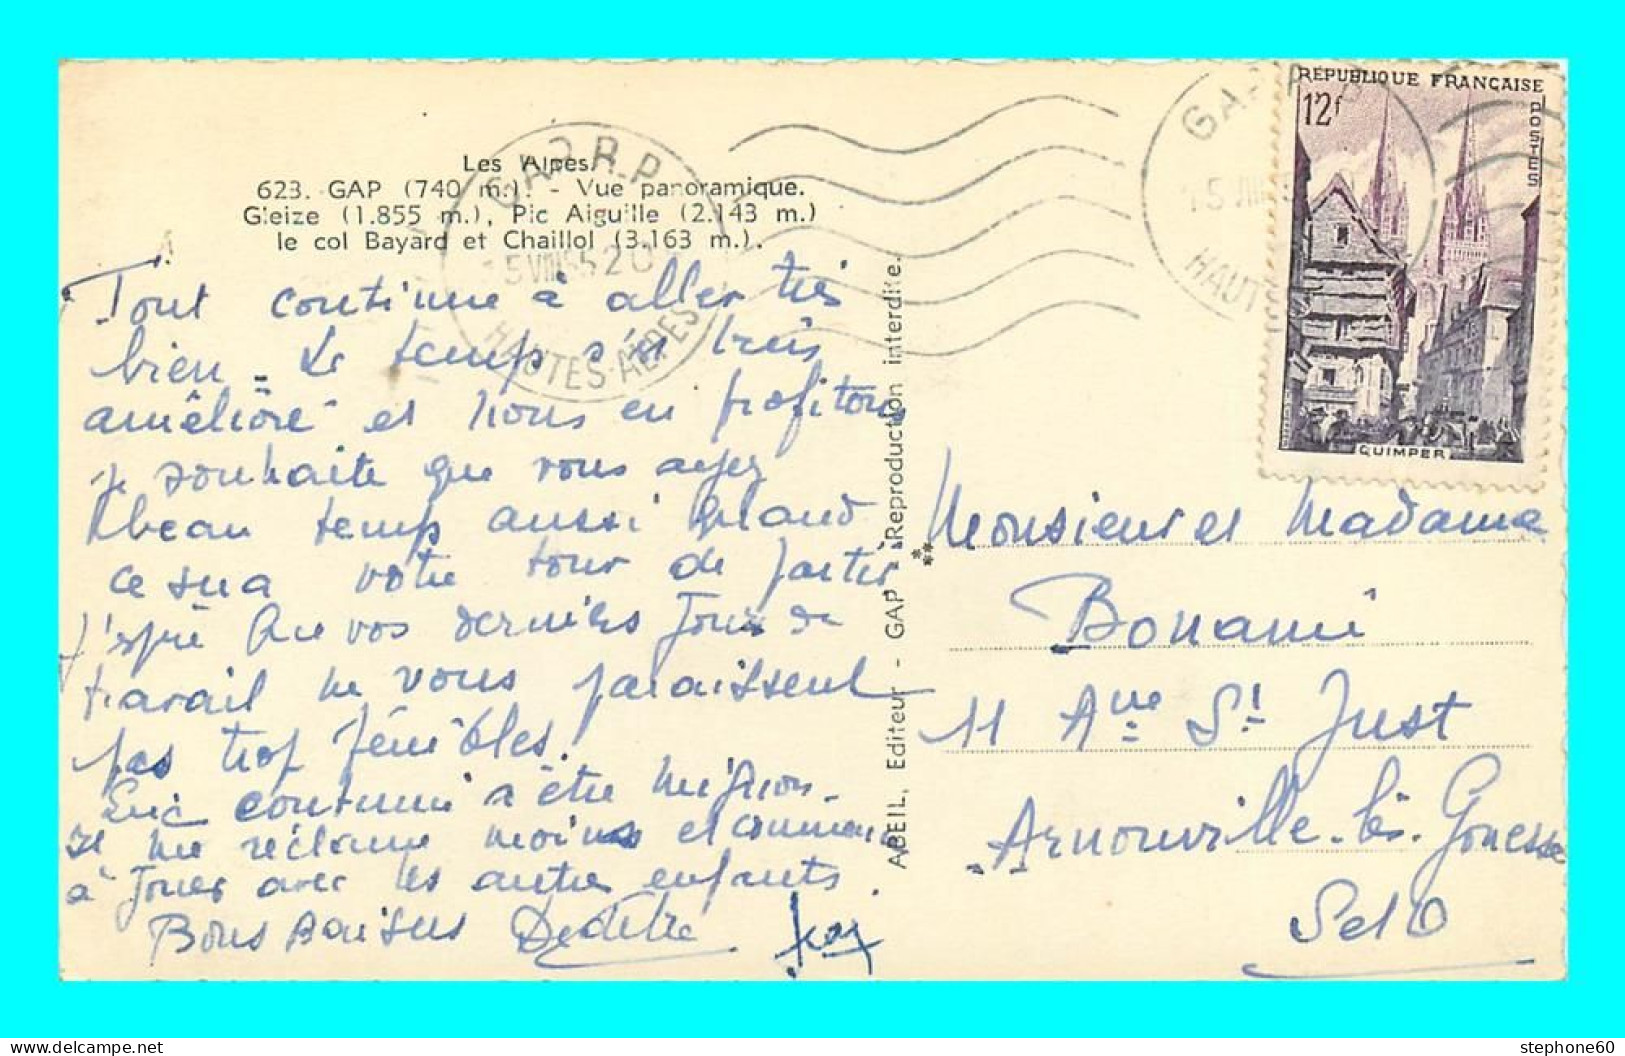 Les Alpes
623. GAP (740 m.). - Vue panoramique.
Gleize (1.855 m.), Pic Aiguille (2.143 m.)
le col Bayard et Chaillol (3.163 m.).
GAP R.P
15 VIII 55 20
HAUTES-ALPES
GAP
15 VIII
HAUT
RÉPUBLIQUE FRANÇAISE
12f
POSTES
QUIMPER
Tout continue à aller très
bien. Le temps s'est
amélioré et nous en profitons
je souhaite que vous ayez
beau temps aussi quand
ce sera votre tour de partir
J'espère que vos derniers jours de
travail ne vous paraissent
pas trop pénibles.
Eric continue à être mignon.
Il me réclame moins et commence
à jouer avec les autres enfants.
Bons Baisers
ABEIL, Editeur - GAP Reproduction interdite.
Monsieur et Madame
Bonami
11 Aue St Just
Arnouville-lès-Gonesse
S et O
stephone60